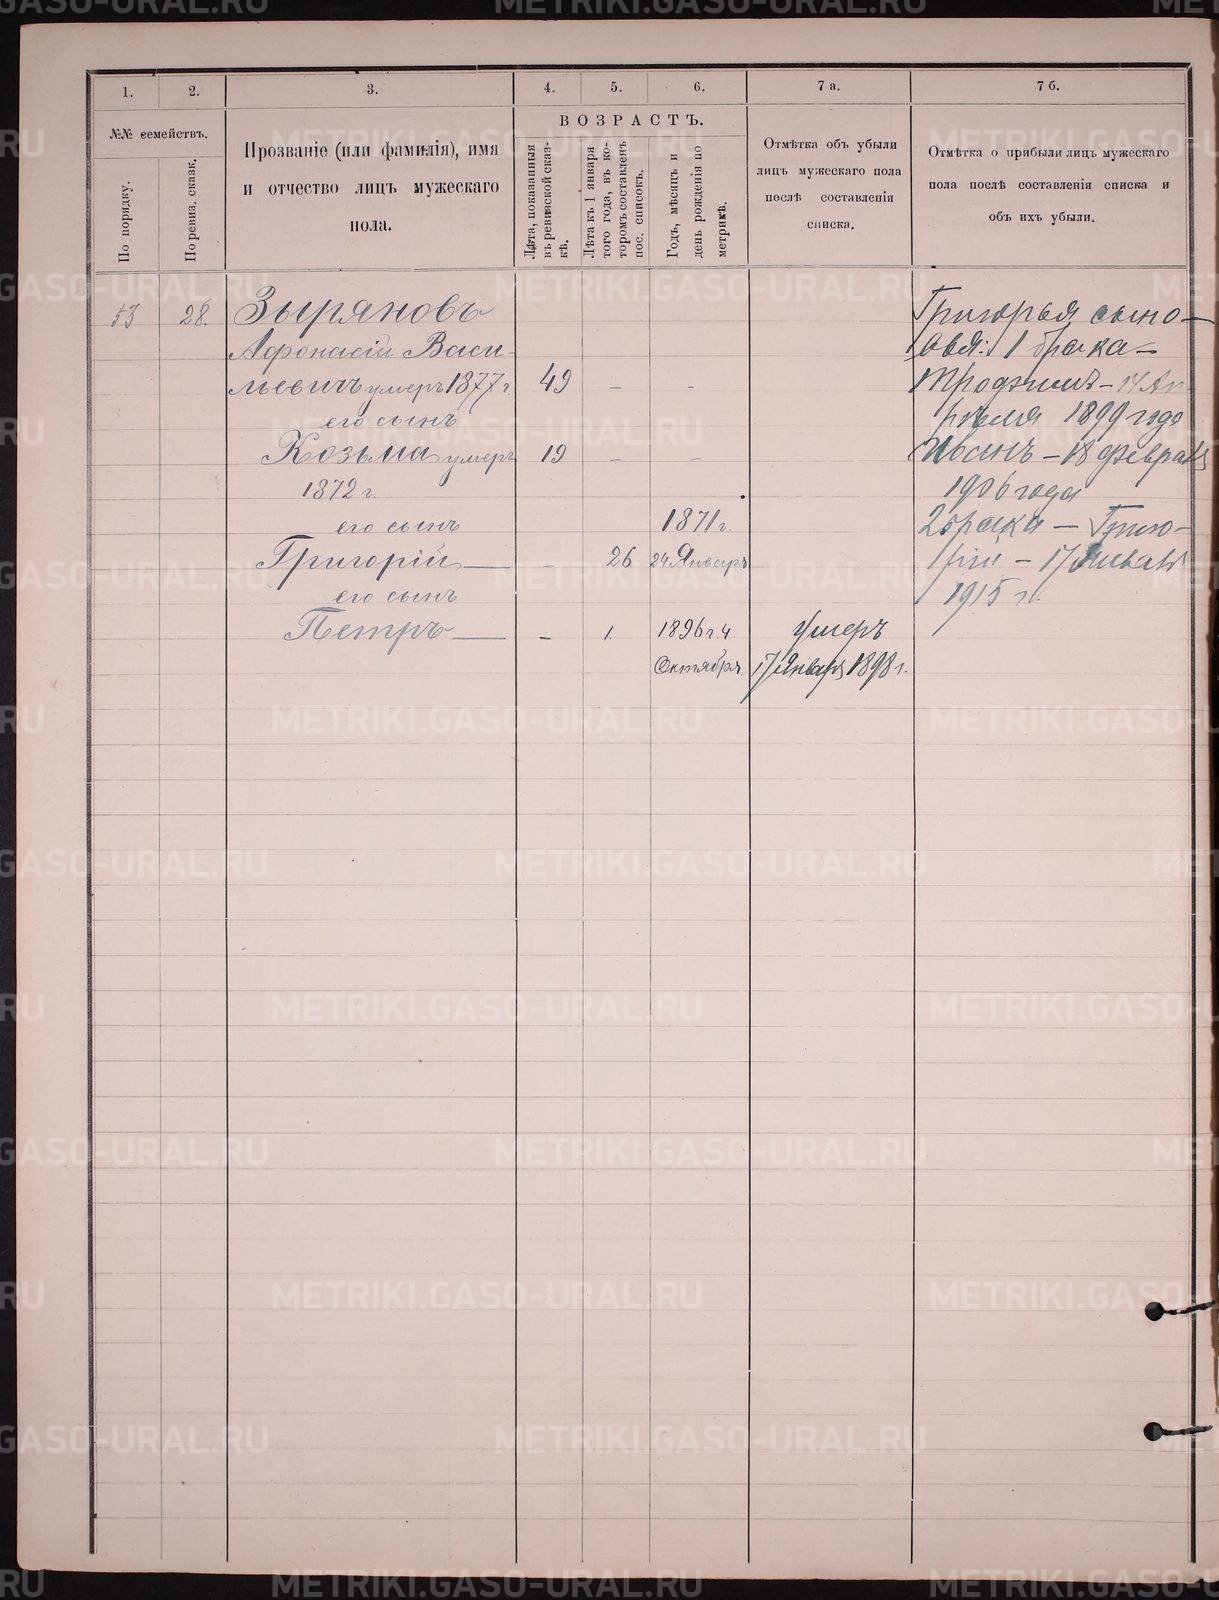 1.
2.
3.
4.
5.
6.
7 а.
7 б.
№№ семействъ.
По порядку.
По ревиз. сказк.
Прозваніе (или фамилія), имя
и отчество лицъ мужескаго
пола.
ВОЗРАСТЪ.
Лѣта, показанныя
въ ревизской сказ-
кѣ.
Лѣта къ 1 января
того года, въ ко-
торомъ составленъ
пос. списокъ.
Годъ, мѣсяцъ и
день рожденія по
метрикѣ.
Отмѣтка объ убыли
лицъ мужескаго пола
послѣ составленія
списка.
Отмѣтка о прибыли лицъ мужескаго
пола послѣ составленія списка и
объ ихъ убыли.
53
28.
Зыряновъ
Афонасій Васи-
льевичъ умеръ 1877 г
49
его сынъ
Козьма умеръ
19
1872 г.
его сынъ
1871 г.
Григорій
26
24 Январъ
его сынъ
Петръ
1
1896 г. 4
Октября
умеръ
17 Января 1898 г.
Григорья сыно-
вья: 1 брака-
Трофимъ - 14 Ап-
рѣля 1899 года
Иванъ - 18 февраля
1906 года
2 брака - Григо-
рій - 17 Января
1915 г.
METRIKI.GASO-URAL.RU